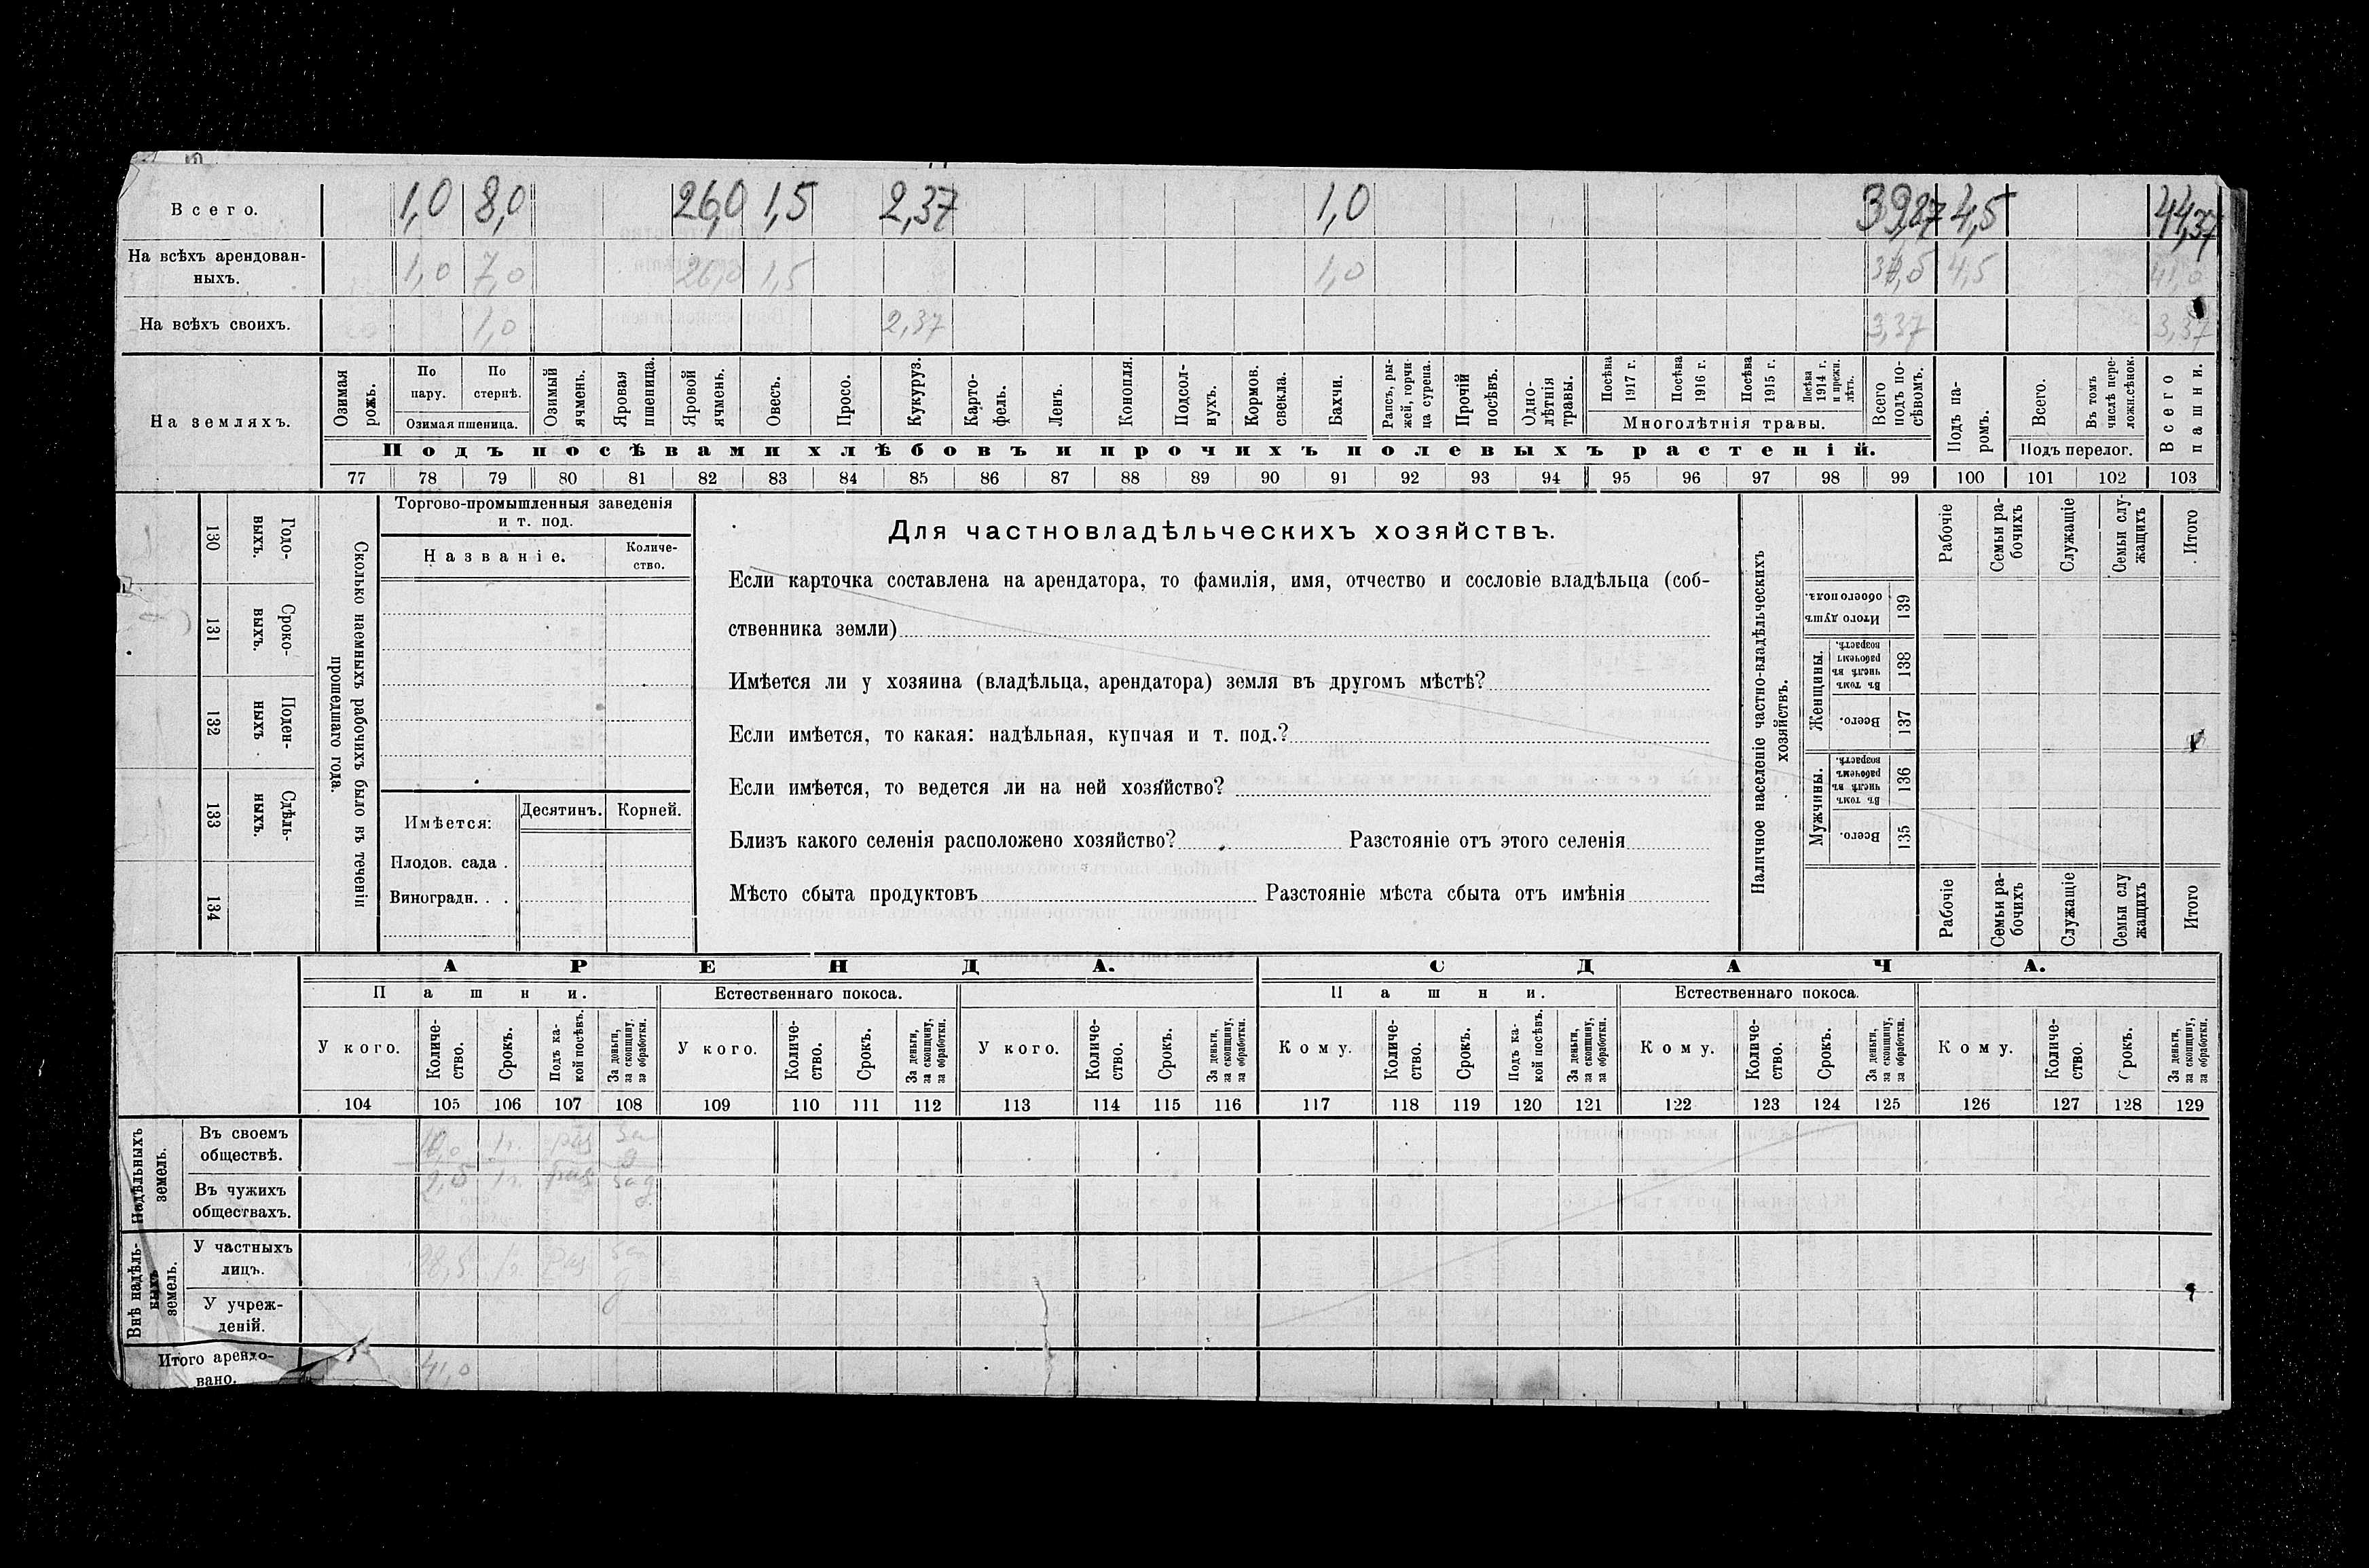 Всего. 1,0 8,0 26,0 1,5 2,37 1,0 39,87 4,5 44,37
На всѣхъ арендован-
ныхъ. 1,0 7,0 26,0 1,5 1,0 4,5 41,0
На всѣхъ своихъ. 1,0 2,37 3,37 3,37
На земляхъ.
Озимая рожь.
По пару.
По стернѣ.
Озимая пшеница.
Озимый ячмень.
Яровая пшеница.
Яровой ячмень.
Овесъ.
Просо.
Кукуруз.
Карто-
фель.
Ленъ.
Конопля.
Подсол-
нухъ.
Кормов. свекла.
Бахчи.
Рапсъ, ры-
жей, горчи-
ца сурепа.
Прочій посѣвъ.
Одно-
лѣтнія
травы.
Посѣва 1917 г.
Посѣва 1916 г.
Посѣва 1915 г.
Посѣва 1914 г. и прежн. лѣтъ.
Многолѣтнія травы.
Всего подъ по-
сѣвомъ.
Подъ па-
ромъ.
Всего.
Въ томъ числѣ пере-
ложн.сѣнок.
Подъ перелог.
Всего пашни.
Подъ посѣвами хлѣбовъ и прочихъ полевыхъ растеній.
77 78 79 80 81 82 83 84 85 86 87 88 89 90 91 92 93 94 95 96 97 98 99 100 101 102 103
130 Годо-
выхъ.
131 Сроко-
выхъ.
132 Поден-
ныхъ
133 Сдѣль-
ныхъ.
134
Сколько наемныхъ рабочихъ было въ теченіи
прошедшаго года.
Торгово-промышленныя заведенія
и т. под.
Названіе. Количе-
ство.
Имѣется: Десятинъ. Корней.
Плодов. сада .
Виноградн. . .
Для частновладѣльческихъ хозяйствъ.
Если карточка составлена на арендатора, то фамилія, имя, отчество и сословіе владѣльца (соб-
ственника земли)
Имѣется ли у хозяина (владѣльца, арендатора) земля въ другомъ мѣстѣ?
Если имѣется, то какая: надѣльная, купчая и т. под.?
Если имѣется, то ведется ли на ней хозяйство?
Близъ какого селенія расположено хозяйство? Разстояніе отъ этого селенія
Мѣсто сбыта продуктовъ Разстояніе мѣста сбыта отъ имѣнія
Наличное населеніе частно-владѣльческихъ
хозяйствъ.
Рабочіе
Семьи ра-
бочихъ
Служащіе
Семьи слу-
жащихъ
Итого
Итого душъ обоего пола. 139
Женщины.
Въ томъ числѣ въ рабочемъ возрастѣ. 138
Всего. 137
Мужчины.
Въ томъ числѣ въ рабочемъ возрастѣ. 136
Всего. 135
Рабочіе
Семьи ра-
бочихъ
Служащіе
Семьи слу
жащихъ
Итого
АРЕНДА. СДАЧА.
Пашни. Естественнаго покоса. Пашни. Естественнаго покоса.
У кого. Количе-
ство. Срокъ. Подъ ка-
кой посѣвъ. За деньги,
за скопщину,
за обработки.
У кого. Количе-
ство. Срокъ. За деньги,
за скопщину,
за обработки.
У кого. Количе-
ство. Срокъ. За деньги,
за скопщину,
за обработки.
Кому. Количе-
ство. Срокъ. Подъ ка-
кой посѣвъ. За деньги,
за скопщину,
за обработки.
Кому. Количе-
ство. Срокъ. За деньги,
за скопщину,
за обработки.
Кому. Количе-
ство. Срокъ. За деньги,
за скопщину,
за обработки.
104 105 106 107 108 109 110 111 112 113 114 115 116 117 118 119 120 121 122 123 124 125 126 127 128 129
Надѣльныхъ
земель.
Въ своемъ
обществѣ. 1г. раз за
Въ чужихъ
обществахъ. 2,5 1г. раз за д
Внѣ надѣль-
ныхъ
земель.
У частныхъ
лицъ. 1г. раз за
У учреж-
деній.
Итого арендо-
вано. 41,0